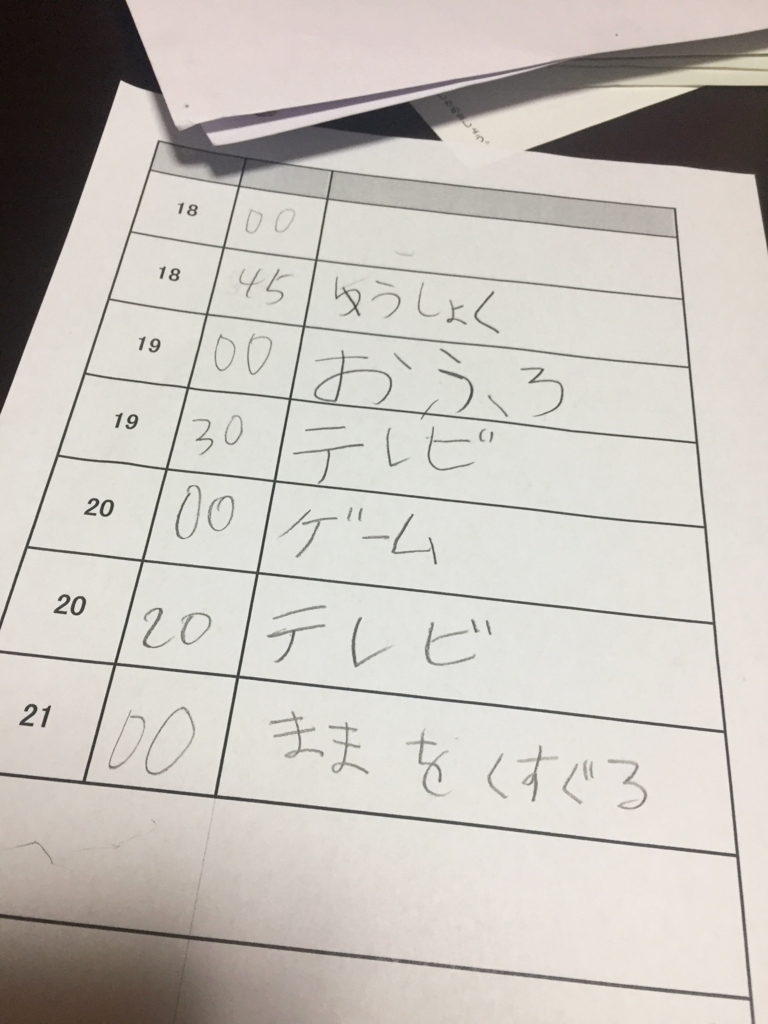 18 00
18 45 ゆうしょく
19 00 おふろ
19 30 テレビ
20 00 ゲーム
20 20 テレビ
21 00 ままをくすぐろ